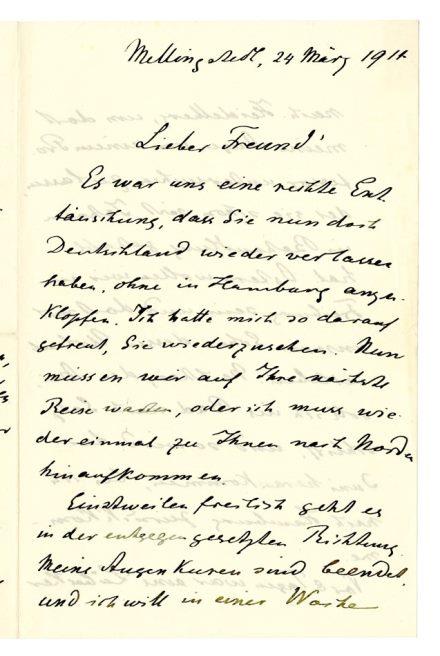 Mellingstedt, 24 März 1911
Lieber Freund!
Es war uns eine rechte Ent-
täuschung, dass Sie nun doch
Deutschland wieder verlassen
haben, ohne in Hamburg anzu-
klopfen. Ich hatte mich so darauf
gefreut, Sie wiederzusehen. Nun
müssen wir auf Ihre nächste
Reise warten, oder ich muss wie-
der einmal zu Ihnen nach Norden
hinaufkommen
Einstweilen freilich geht es
in der entgegengesetzten Richtung.
Meine Augen Kuren sind beendet,
und ich will in einer Woche